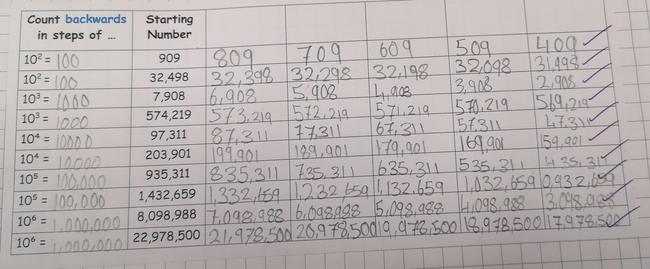 Count backwards in steps of ... Starting Number
10² = 100 909 809 709 609 509 409
10² = 100 32,498 32,398 32,298 32,198 32,098 31,998
10³ = 1000 7,908 6,908 5,908 4,908 3,908 2,908
10³ = 1000 574,219 573,219 572,219 571,219 570,219 569,219
10⁴ = 10000 97,311 87,311 77,311 67,311 57,311 47,311
10⁴ = 10000 203,901 199,901 189,901 179,901 169,901 159,901
10⁵ = 100,000 935,311 835,311 735,311 635,311 535,311 435,311
10⁵ = 100,000 1,432,659 1,332,659 1,232 659 1,132,659 1,032,659 0,932,659
10⁶ = 1,000,000 8,098,988 7,098,988 6,098,988 5,098,988 4,098,988 3,098,988
10⁶ = 1,000,000 22,978,500 21,978,500 20,978,500 19,978,500 18,978,500 17,978,500